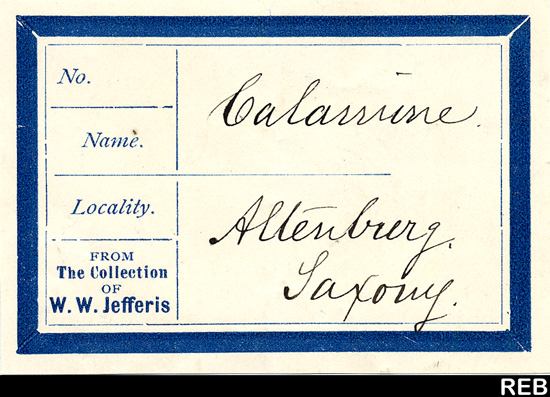 No.
Calamine.
Name.
Locality.
Altenburg,
Saxony.
FROM
The Collection
OF
W. W. Jefferis
REB